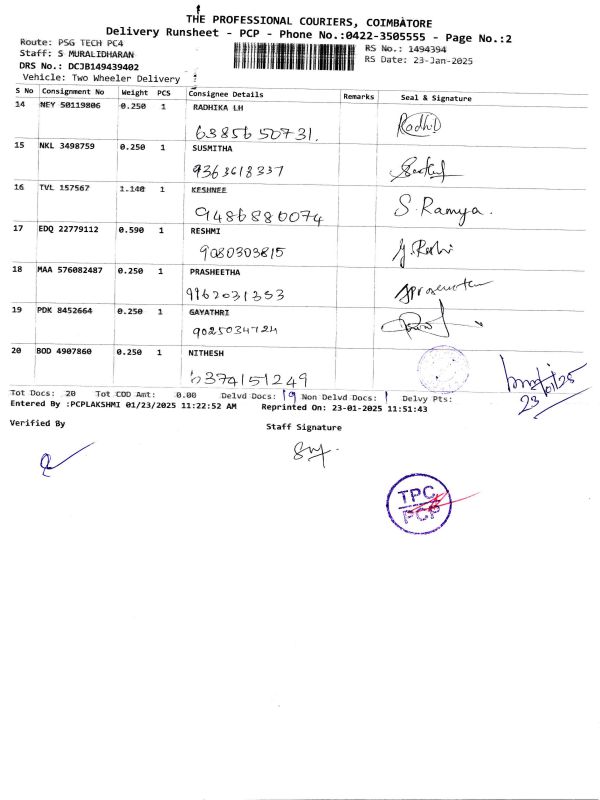 THE PROFESSIONAL COURIERS, COIMBATORE
Delivery Runsheet - PCP - Phone No.:0422-3505555 - Page No.:2
Route: PSG TECH PC4
RS No.: 1494394
Staff: S MURALIDHARAN
RS Date: 23-Jan-2025
DRS No.: DCJB149439402
Vehicle: Two Wheeler Delivery
S No Consignment No Weight PCS Consignee Details Remarks Seal & Signature
14 NEY 50119806 0.250 1 RADHIKA LH
6385650731.
15 NKL 3498759 0.250 1 SUSMITHA
9363618337
16 TVL 157567 1.140 1 KESHNEE
9486880074 S. Ramya.
17 EDQ 22779112 0.590 1 RESHMI
9080303815
18 MAA 576082487 0.250 1 PRASHEETHA
9962031353
19 PDK 8452664 0.250 1 GAYATHRI
9025034724
20 BOD 4907860 0.250 1 NITHESH
6374151249
23/01/25
Tot Docs: 20 Tot COD Amt: 0.00 Delvd Docs: 19 Non Delvd Docs: 1 Delvy Pts:
Entered By :PCPLAKSHMI 01/23/2025 11:22:52 AM Reprinted On: 23-01-2025 11:51:43
Verified By
Staff Signature
TPC
PCP